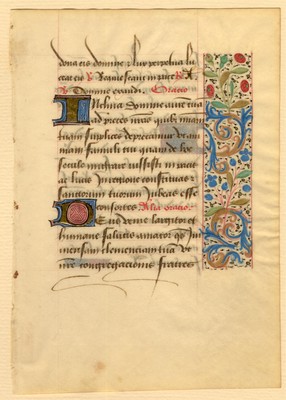 dona eis domine et lux perpetua lu
ceat eis R Requiescant in pace R A
R Domine exaudi. Oratio
Inclina domine aurem tuam
ad preces nr̄as quib; miam
tuam supplices deprecamur ut ani
mam famuli tui quam de hoc
seculo migrare iussisti in pacis
ac lucis in regione constituas
sanctorum tuorum iubeas esse
consortes Alia oratio.
Deus venie largitor et
humane salutis amator qs im
mensam clemenciam tuā ut
nr̄e congregacionis fratres